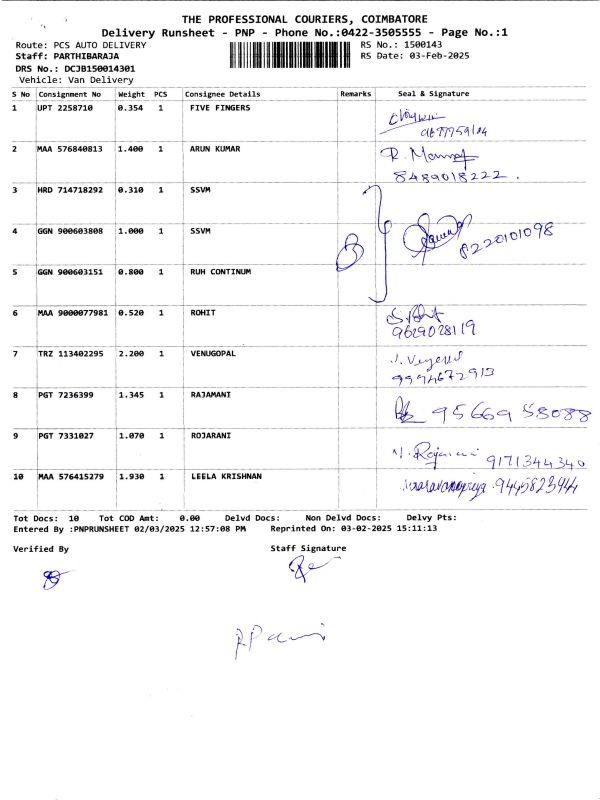 THE PROFESSIONAL COURIERS, COIMBATORE
Delivery Runsheet - PNP - Phone No.:0422-3505555 - Page No.:1
Route: PCS AUTO DELIVERY RS No.: 1500143
Staff: PARTHIBARAJA RS Date: 03-Feb-2025
DRS No.: DCJB150014301
Vehicle: Van Delivery
S No Consignment No Weight PCS Consignee Details Remarks Seal & Signature
1 UPT 2258710 0.354 1 FIVE FINGERS
2 MAA 576840813 1.400 1 ARUN KUMAR R.
8489018222.
3 HRD 714718292 0.310 1 SSVM
4 GGN 900603808 1.000 1 SSVM 8220101098
5 GGN 900603151 0.800 1 RUH CONTINUM
6 MAA 9000077981 0.520 1 ROHIT
9629028119
7 TRZ 113402295 2.200 1 VENUGOPAL
9994672913
8 PGT 7236399 1.345 1 RAJAMANI 9566958088
9 PGT 7331027 1.070 1 ROJARANI 9171344340
10 MAA 576415279 1.930 1 LEELA KRISHNAN
Tot Docs: 10 Tot COD Amt: 0.00 Delvd Docs: Non Delvd Docs: Delvy Pts:
Entered By :PNPRUNSHEET 02/03/2025 12:57:08 PM Reprinted On: 03-02-2025 15:11:13
Verified By Staff Signature